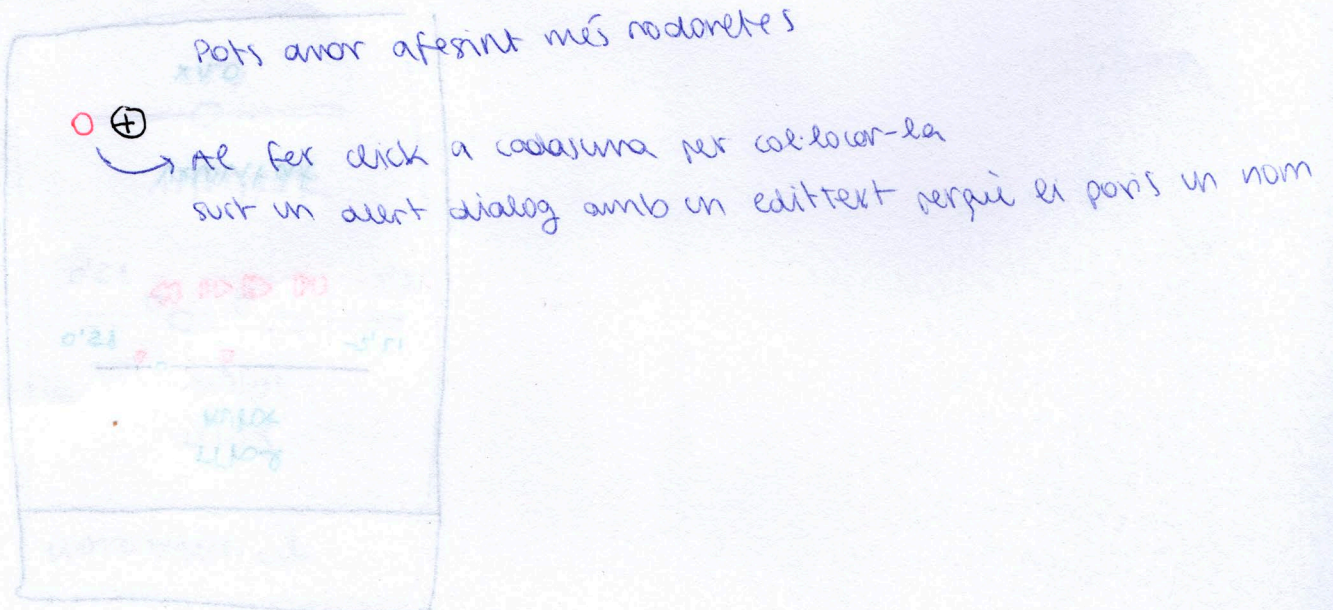 Pots anar afegint més rodonetes
Al fer click a cadascuna per col·locar-la
surt un alert dialog amb un edittext perquè li posis un nom